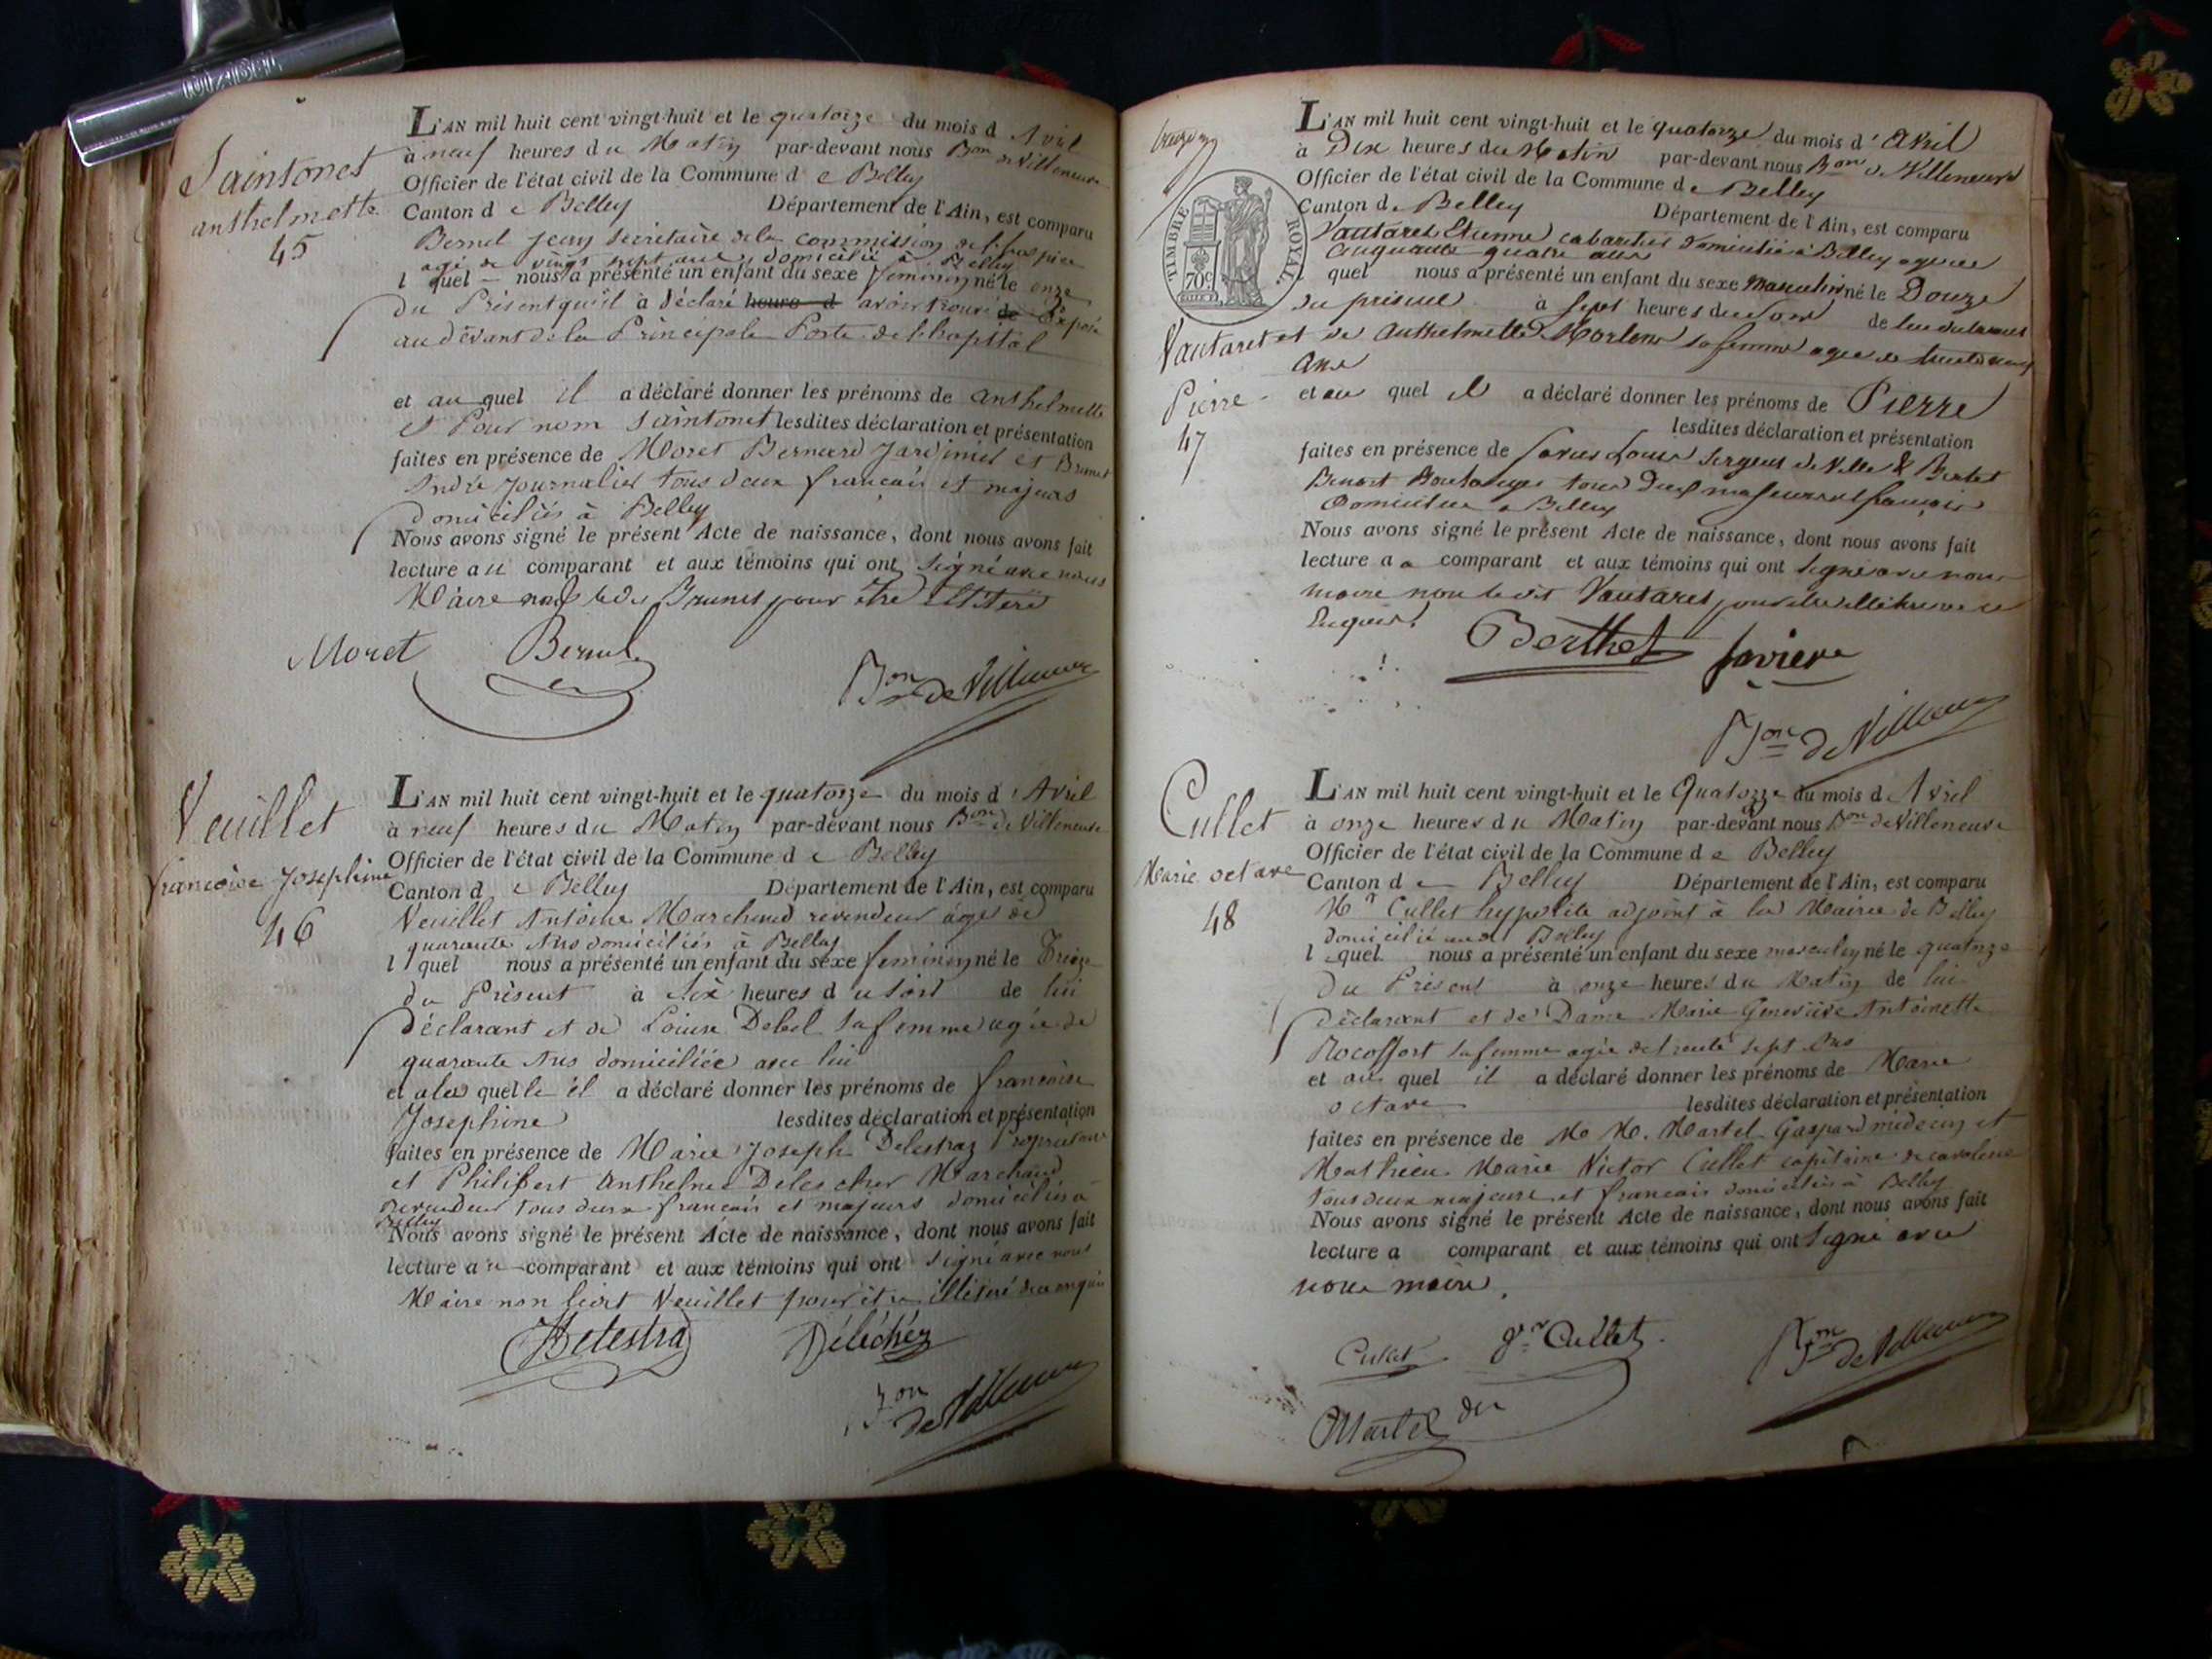 Saintonet
anthelmette
45
L'AN mil huit cent vingt-huit et le quatorze du mois d Avril
à neuf heures du Matin par-devant nous Bon de Villeneuve
Officier de l'état civil de la Commune de Belley
Canton de Belley Département de l'Ain, est comparu
Bernel Jean Secrétaire de la commission de l'hospice
agé de vingt sept ans, domicilié à Belley
l quel nous a présenté un enfant du sexe feminin né le onze
du Présent qu'il à déclaré heure d avoir trouvé de Exposé
au devant de la Principale Porte de l'hopital
et au quel il a déclaré donner les prénoms de anthelmette
et Pour nom Saintonet lesdites déclaration et présentation
faites en présence de Moret Bernard Jardinier et Brunet
André Journalier tous deux français et majeurs
domiciliés à Belley
Nous avons signé le présent Acte de naissance, dont nous avons fait
lecture au comparant et aux témoins qui ont signé avec nous
Maire non le dit Brunet pour être illitéré
Moret Bernel
Bon de Villeneuve
Veuillet
francoise Josephine
46
L'AN mil huit cent vingt-huit et le quatorze du mois d'Avril
à neuf heures du Matin par-devant nous Bon de Villeneuve
Officier de l'état civil de la Commune de Belley
Canton de Belley Département de l'Ain, est comparu
Veuillet Antoine Marchand revendeur âgé de
quarante Ans domiciliés à Belley
l quel nous a présenté un enfant du sexe feminin né le Trèize
du Présent à Six heures du soir de lui
déclarant et de Louise Debel sa femme agée de
quarante Ans domiciliée avec lui
et a la quelle il a déclaré donner les prénoms de francoise
Josephine lesdites déclaration et présentation
faites en présence de Marie Joseph Delestraz Propriétaire
et Philibert Anthelme Delescher Marchand
revendeur tous deux français et majeurs domiciliés à
Belley
Nous avons signé le présent Acte de naissance, dont nous avons fait
lecture au comparant et aux témoins qui ont signé avec nous
Maire non ledit Veuillet pour être illitéré de ce enquis
Delestra Déléchéz
Bon de Villeneuve
TIMBRE ROYAL
70c
Vautaret
Pierre
47
L'AN mil huit cent vingt-huit et le quatorze du mois d'Avril
à Dix heures du Matin par-devant nous Bon de Villeneuve
Officier de l'état civil de la Commune de Belley
Canton de Belley Département de l'Ain, est comparu
Vautaret Etienne cabaretier domicilié à Belley agé de
cinquante quatre ans
quel nous a présenté un enfant du sexe Masculin né le Douze
du présent à Sept heures du soir de lui déclarant
et de Anthelmette Morlens sa femme agée de trente neuf
ans
et au quel il a déclaré donner les prénoms de Pierre
lesdites déclaration et présentation
faites en présence de Louis sergent de Ville & Bertet
Benoit tous Deux majeurs et français
Domiciliés à Belley
Nous avons signé le présent Acte de naissance, dont nous avons fait
lecture a comparant et aux témoins qui ont signé avec nous
maire non le dit Vautaret pour être illitéré de ce
Enquis.
Berthet
Bon de Villeneuve
Cullet
Marie octave
48
L'AN mil huit cent vingt-huit et le Quatorze du mois d Avril
à onze heures du Matin par-devant nous Bon de Villeneuve
Officier de l'état civil de la Commune de Belley
Canton de Belley Département de l'Ain, est comparu
Mr Cullet hypolite adjoint à la Mairie de Belley
domicilié Belley
lequel nous a présenté un enfant du sexe masculin né le quatorze
du Présent à onze heures du Matin de lui
déclarant et de Dame Marie Geneviève Antoinette
Rocoffort sa femme agée de trente sept Ans
et au quel il a déclaré donner les prénoms de Marie
octave lesdites déclaration et présentation
faites en présence de M M. Martel Gaspard médecin et
Mathieu Marie Victor Cullet capitaine de cavalerie
tous deux majeurs et francais domiciliés à Belley
Nous avons signé le présent Acte de naissance, dont nous avons fait
lecture a comparant et aux témoins qui ont signé avec
nous maire.
Cullet Cullet
Bon de Villeneuve
Martel